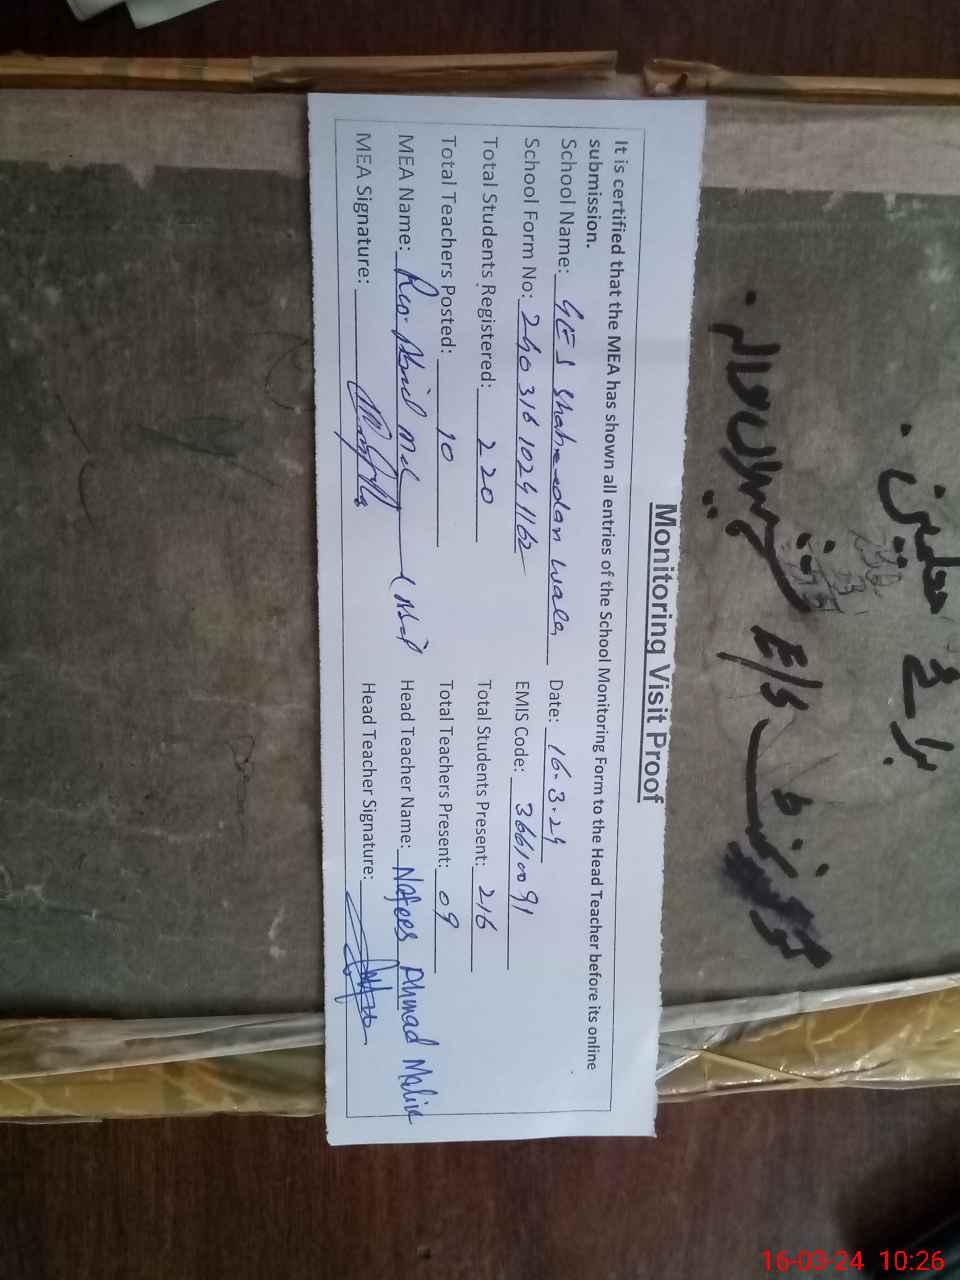 Monitoring Visit Proof
It is certified that the MEA has shown all entries of the School Monitoring Form to the Head Teacher before its online
submission.
School Name: GES Shaheedan wala Date: 16.3.24
School Form No: 240316 1024 1162 EMIS Code: 36610091
Total Students Registered: 220 Total Students Present: 216
Total Teachers Posted: 10 Total Teachers Present: 09
MEA Name: Head Teacher Name: Nafees Ahmad Malik
MEA Signature: Head Teacher Signature:
برائے معلمین
گورنمنٹ E/S
16-03-24 10:26